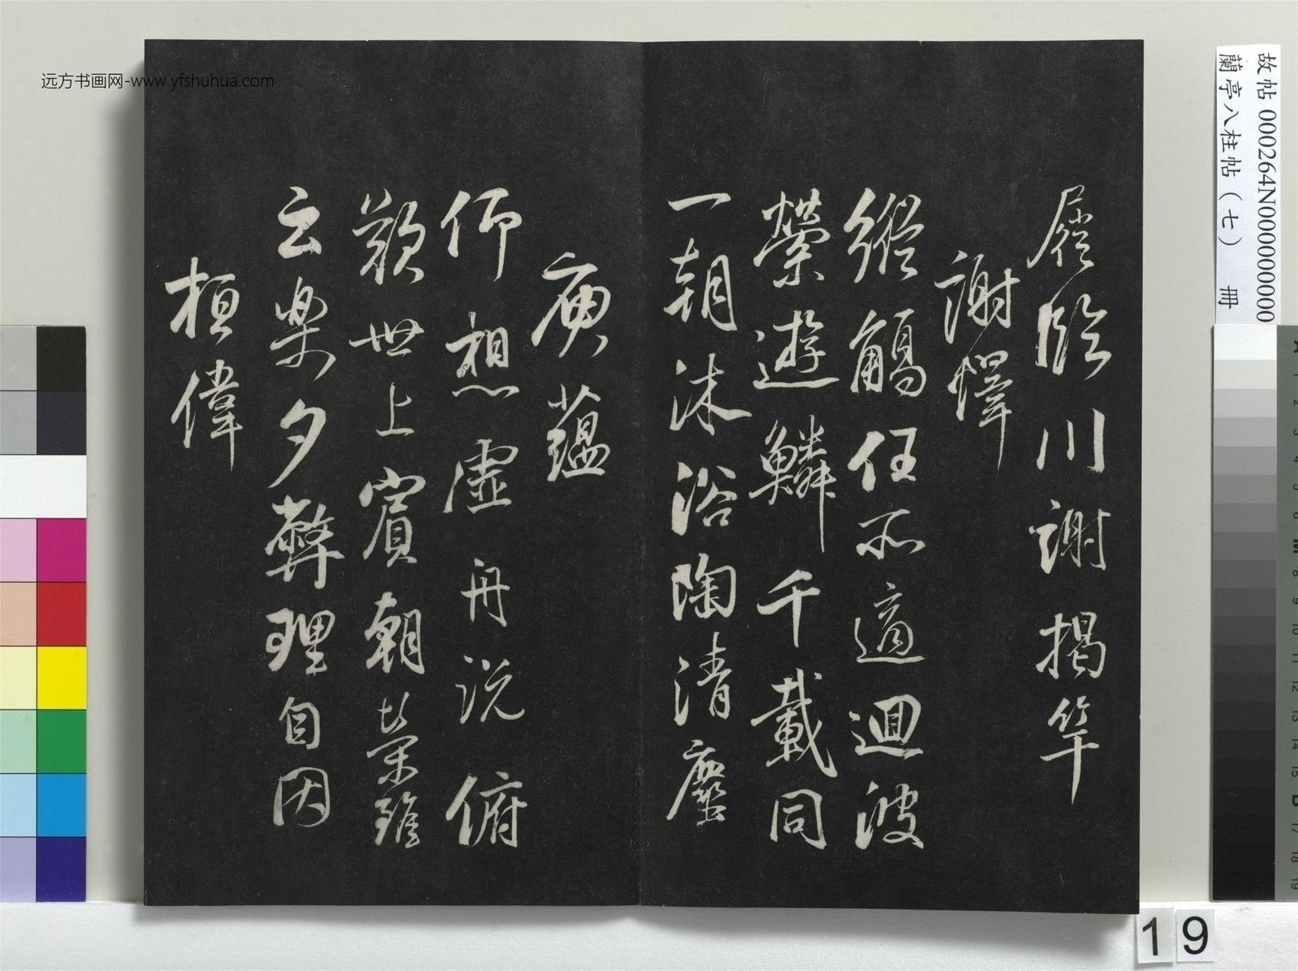 履臨川謝揭竿
謝懌
縱觴任所適迴波
縈遊鱗千載同
一朝沐浴陶清塵
庾蘊
仰想虛舟說俯
歎世上賓朝榮雖
云樂夕弊理自因
桓偉
远方书画网-www.yfshuhua.com
故帖 000264N000000000
蘭亭八柱帖(七) 冊
19